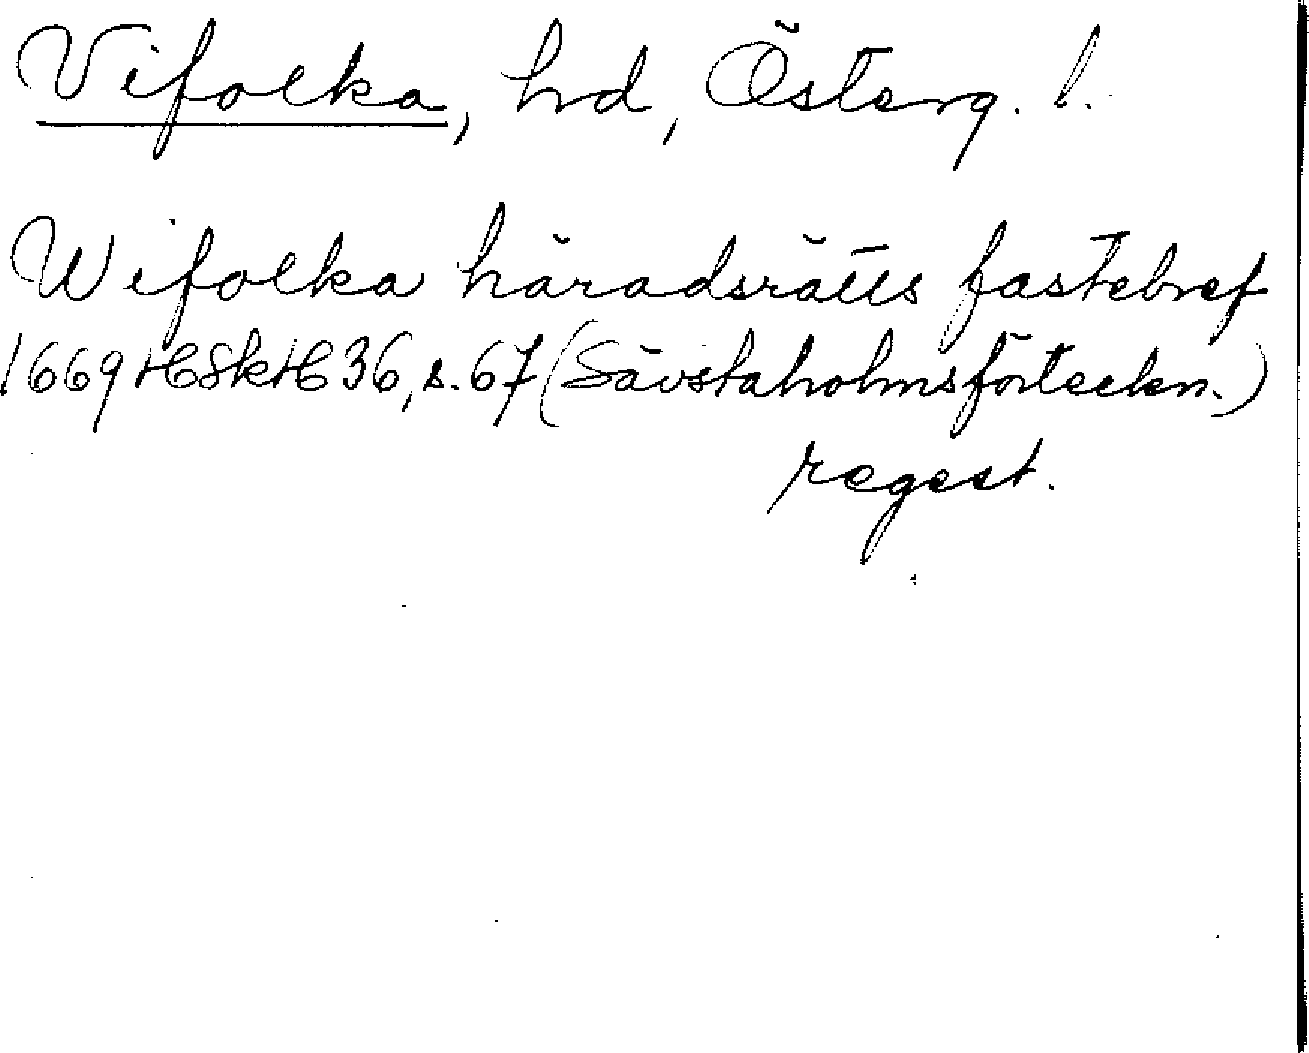 Vifolka, hrd, Österg. l.
Wifolka häradsrätts fastebref
1669 HSkH 36, s. 67 (Sävstaholmsförteckn.)
regest.